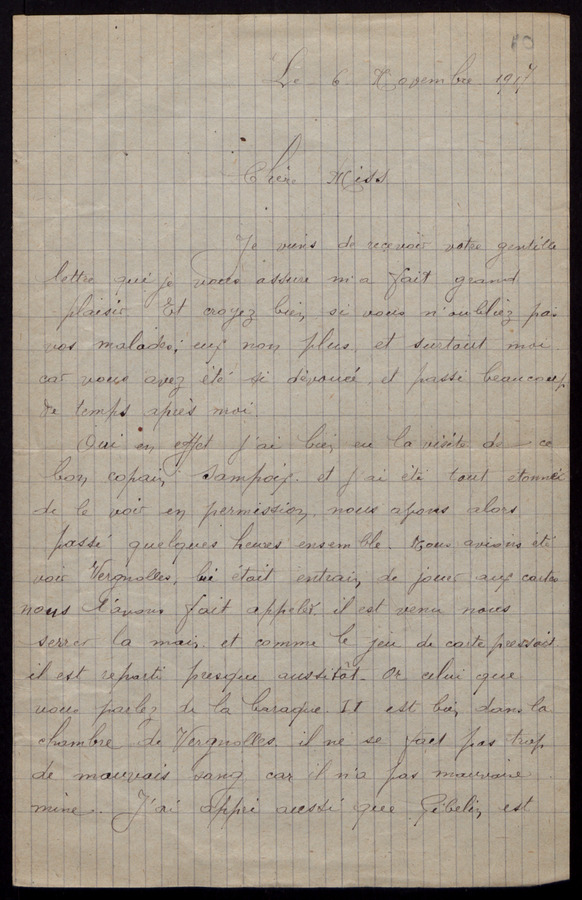 10
Le 6 Novembre 1917
Chère Miss
Je viens de recevoir votre gentille
lettre qui je vous assure m'a fait grand
plaisir. Et croyez bien, si vous n'oubliez pas
vos malades; eux non plus, et surtout moi
car vous avez été si dévoué, et passé beaucoup
de temps après moi.
Oui en effet j'ai bien eu la visite de ce
bon copain, et j'ai été tout étonné
de le voir en permission, nous avons alors
passé quelques heures ensemble. Nous avions été
voir Vergnolles, lui était entrain de jouer aux cartes
nous l'avons fait appeler, il est venu nous
serrer la main, et comme le jeu de carte pressait
il est reparti presque aussitôt. Or celui que
vous parlez de la baraque. 11 est bien dans la
chambre de Vergnolles, il ne se fait pas trop
de mauvais sang car il n'a pas mauvaise
mine. J'ai appri aussi que Gibelin, est